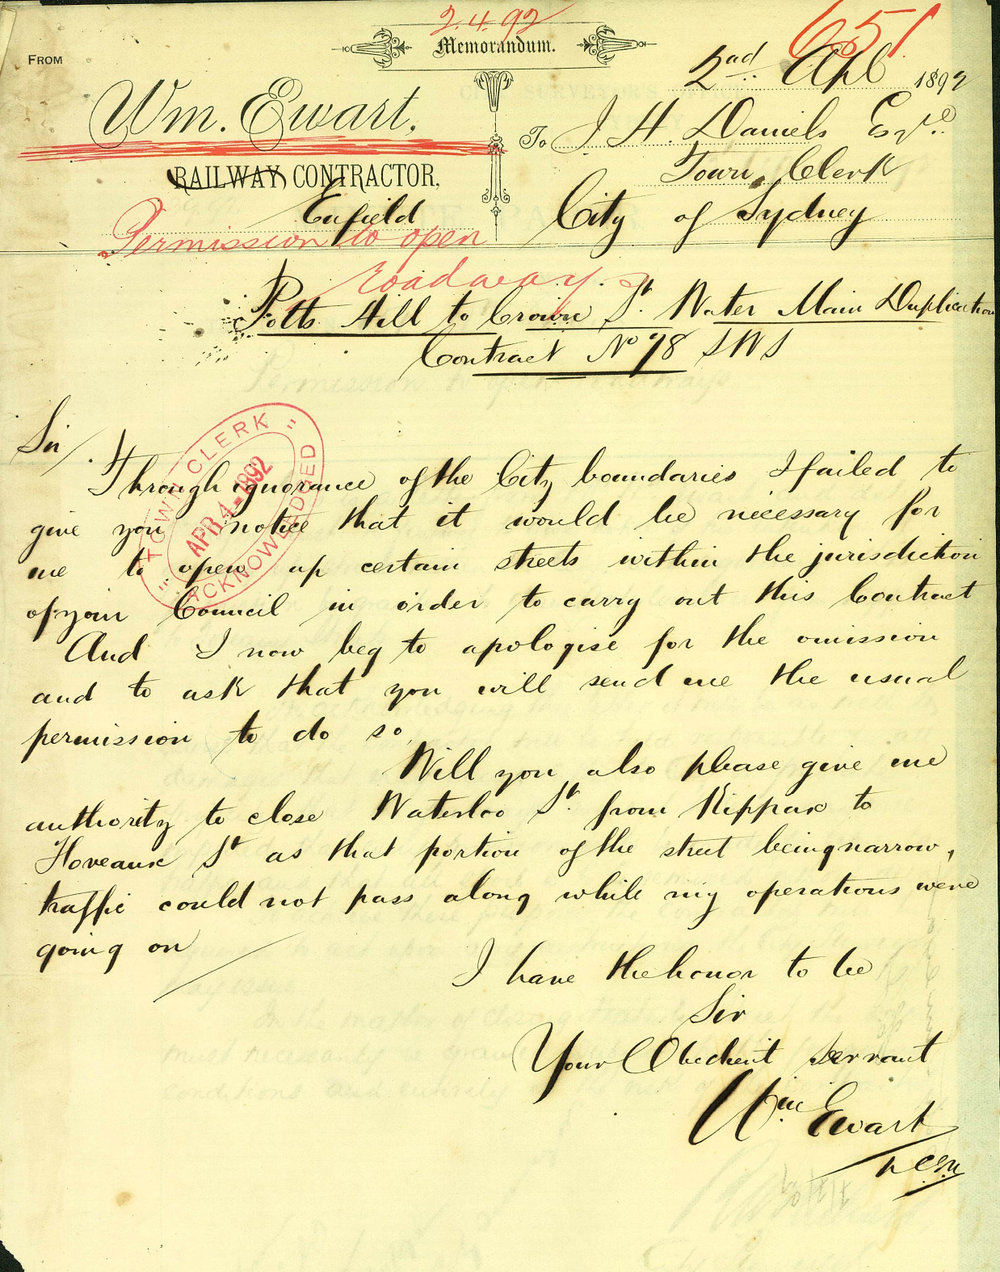 2.4.92
651
Memorandum.
FROM
2nd April 1892
Wm. Ewart,
To J. H. Daniels Esqre
RAILWAY CONTRACTOR,
Town Clerk
Enfield
City of Sydney
Permission to open
roadways
Potts Hill to Crown St. Water Main Duplication
Contract No 98 SWS
Sir
Through ignorance of the City boundaries I failed to
give you notice that it would be necessary for
me to open up certain streets within the jurisdiction
of your Council in order to carry out this Contract
And I now beg to apologise for the omission
and to ask that you will send me the usual
permission to do so.
Will you also please give me
authority to close Waterloo St. from Kippax to
Foveaux St as that portion of the street being narrow,
traffic could not pass along while my operations were
going on
TOWN CLERK
APR 4-1892
ACKNOWLEDGED
I have the honor to be
Sir
Your Obedient Servant
Wm Ewart